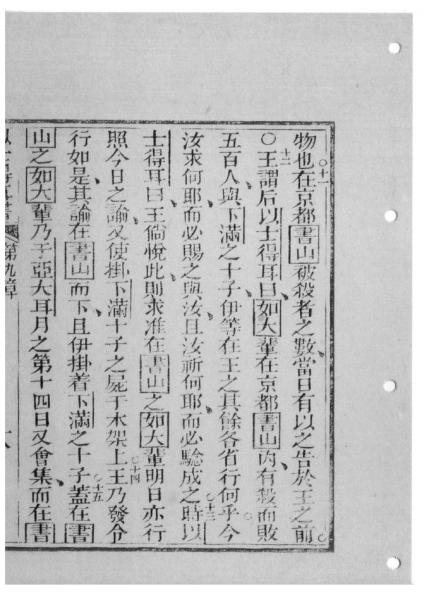 物也在京都書山被殺者之數當日有以之告於王之前
○王謂后以士得耳曰如大輩在京都書山內有殺而敗
五百人與下滿之十子伊等在王之其餘各省行何乎今
汝求何耶而必賜之與汝且汝祈何耶而必驗成之時以
士得耳曰王倘悅此則求准在書山之如大輩明日亦行
照今日之諭又使掛下滿十子之屍于木架上王乃發令
行如是其諭在書山而下且伊掛着下滿之十子蓋在書
山之如大輩乃于亞大耳月之第十四日又會集而在書
以士得耳書 第九章